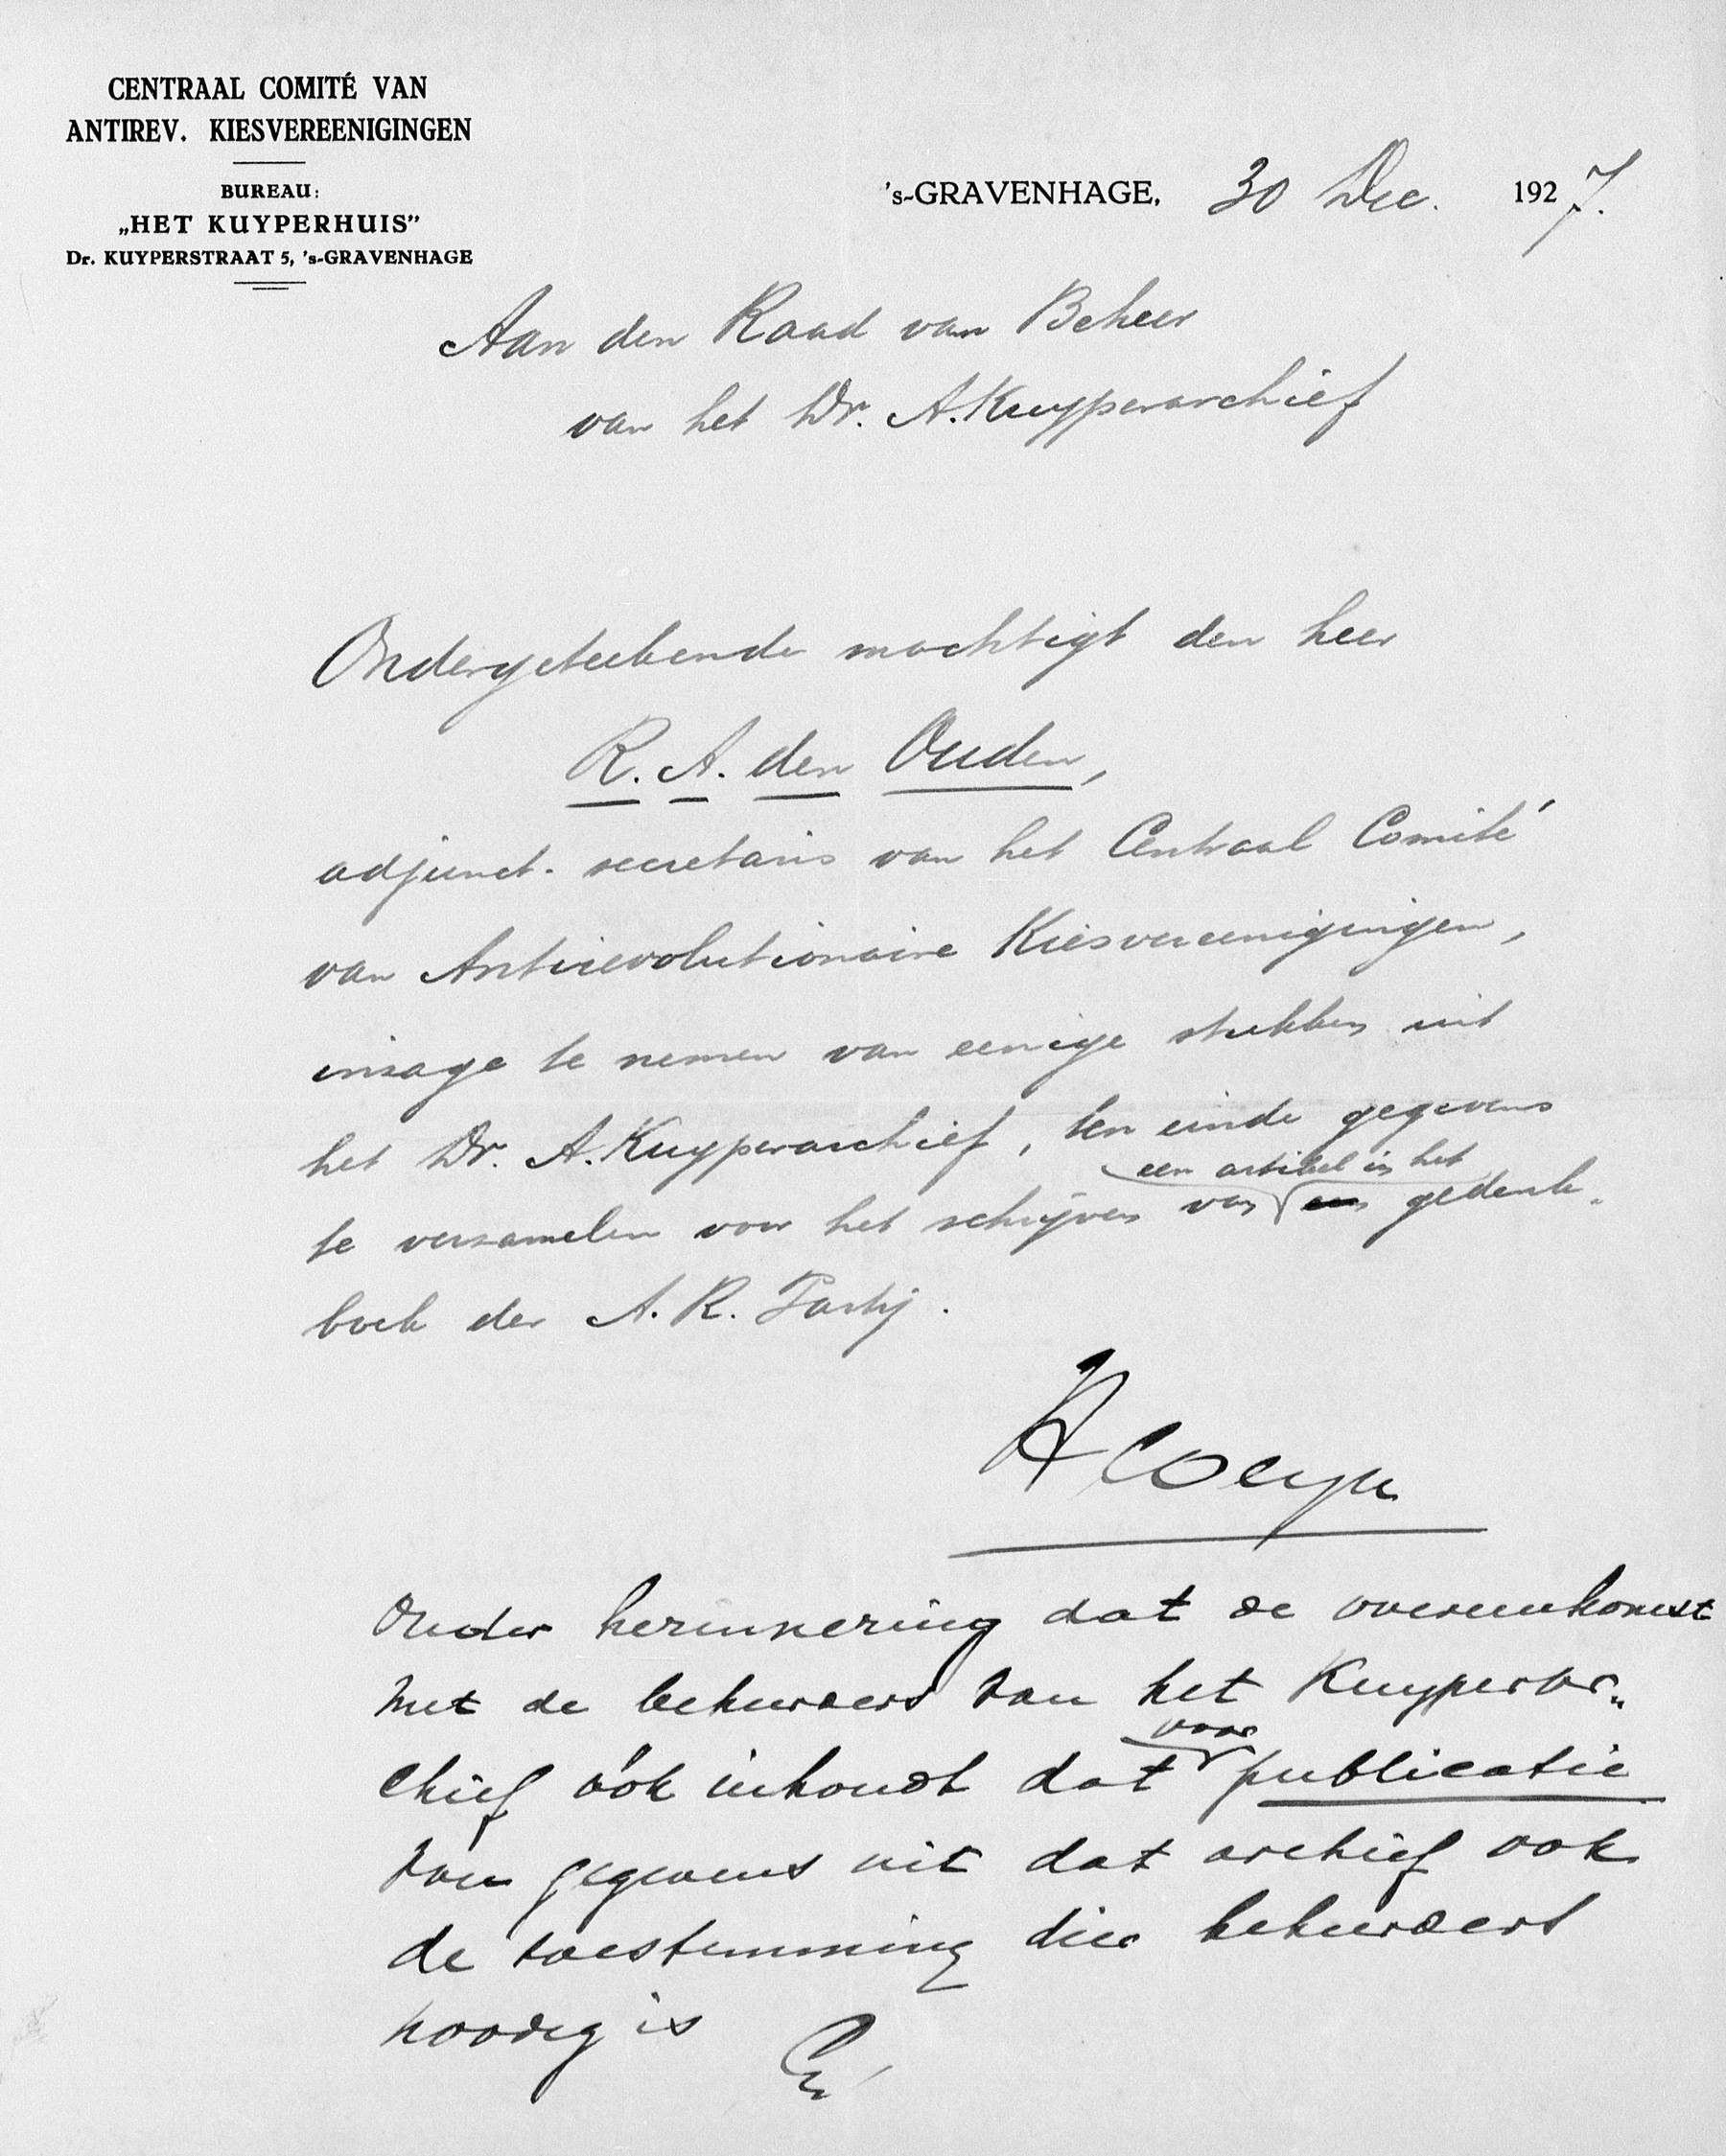 CENTRAAL COMITÉ VAN
ANTIREV. KIESVEREENIGINGEN
BUREAU:
„HET KUYPERHUIS”
Dr. KUYPERSTRAAT 5, 's-GRAVENHAGE
's-GRAVENHAGE, 30 Dec. 1927.
Aan den Raad van Beheer
van het Dr. A. Kuyperarchief
Ondergeteekende machtigt den heer
R. A. den Ouden,
adjunct-secretaris van het Centraal Comité
van Antirevolutionaire Kiesvereenigingen,
inzage te nemen van eenige stukken uit
het Dr. A. Kuyperarchief, ten einde gegevens
een artikel in het
te verzamelen voor het schrijven van een gedenk-
boek der A. R. Partij.
H Colijn
Onder herinnering dat de overeenkomst
met de beheerders van het Kuyperar-
voor
chief óók inhoudt dat publicatie
van gegevens uit dat archief ook
de toestemming dier beheerders
noodig is